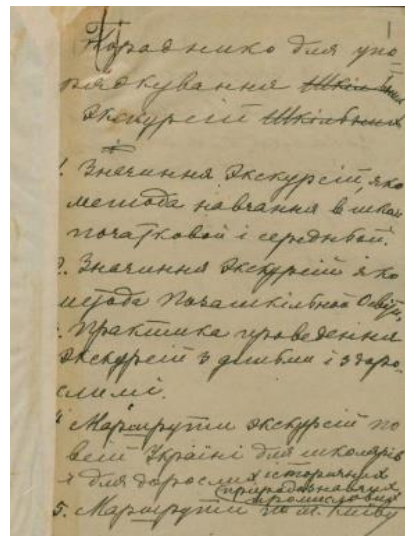 1
Пораднико для упо-
рядкування Шкільних
Экскурсій Шкільних
1. Значиння Экскурсій, яко
метода навчання в школі
початковой і середньой.
2. Значиння Экскурсій яко
метода Позашкільной Освіти.
3. Практика проведення
экскурсій з дітьми і з доро-
слимі.
4. Маршрути экскурсій по
всій Україні для школярів
і для дорослих історичних
природничих
промислових
5. Маршрути по м. Київу